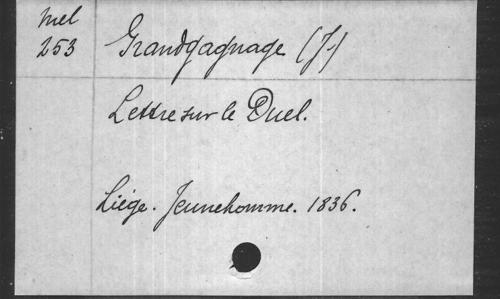 Mel
253
Grandgagnage (J.)
Lettre sur le Duel.
Liége. Jeunehomme. 1836.